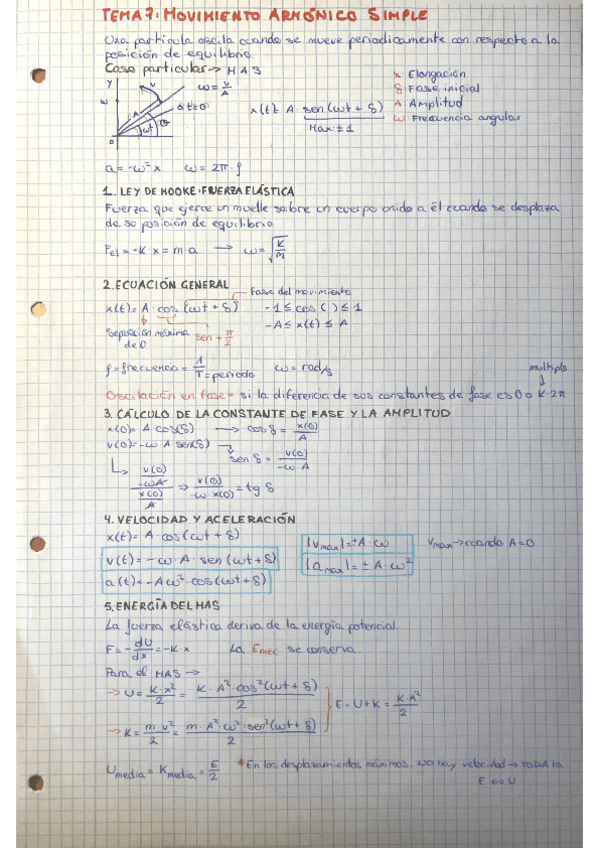 TEMA 7: MOVIMIENTO ARMÓNICO SIMPLE
Una partícula oscila cuando se mueve periodicamente con respecto a la
posición de equilibrio.
Caso particular → HAS
x Elongación
δ Fase inicial
A Amplitud
ω Frecuencia angular
y
ω
v
A
δ t=0
ωt
0
ω = v/A
x(t) = A · sen(ωt + δ)
Max ± 1
a = -ω² x ω = 2π · f
1. LEY DE HOOKE: FUERZA ELÁSTICA
Fuerza que ejerce un muelle sobre un cuerpo unido a él cuando se desplaza
de su posición de equilibrio
Fel = -K · x = m · a → ω = √(K/m)
2. ECUACIÓN GENERAL
fase del movimiento
x(t) = A · cos (ωt + δ) -1 ≤ cos ( ) ≤ 1
Separación máxima de 0
sen + π/2
-A ≤ x(t) ≤ A
f = frecuencia = 1/T = periodo ω = rad/s
multiplo
Oscilación en fase = si la diferencia de sus constantes de fase es 0 o K · 2π
3. CÁLCULO DE LA CONSTANTE DE FASE Y LA AMPLITUD
x(0) = A cos(δ) → cos δ = x(0)/A
v(0) = -ω A sen(δ) → sen δ = v(0)/-ω·A
(v(0)/-ωA)/(x(0)/A) ⇒ v(0)/-ω·x(0) = tg δ
4. VELOCIDAD Y ACELERACIÓN
x(t) = A · cos(ωt + δ)
v(t) = -ω · A · sen(ωt + δ)
a(t) = -Aω² cos(ωt + δ)
|vmax| = ± A · ω
|amax| = ± A · ω²
vmax → cuando A = 0
5. ENERGÍA DEL HAS
La fuerza elástica deriva de la energía potencial.
F = -dU/dx = -K · x La Emec se conserva.
Para el HAS →
→ U = K·x²/2 = K·A² cos²(ωt + δ)/2
E = U + K = K·A²/2
→ K = m·v²/2 = m·A²·ω²·sen²(ωt + δ)/2
Umedia = Kmedia = E/2
* En los desplazamientos máximos, NO hay velocidad → TODA la
E es U